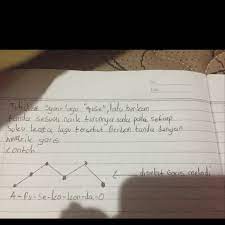 Tuliskan syair lagu "Apuse", lalu berikan
tanda sesuai naik turunnya nada pada setiap
suku kata lagu tersebut. Berikan tanda dengan
menarik garis
contoh
disebut garis melodi
A - Pu - Se - ko - kon - da - O